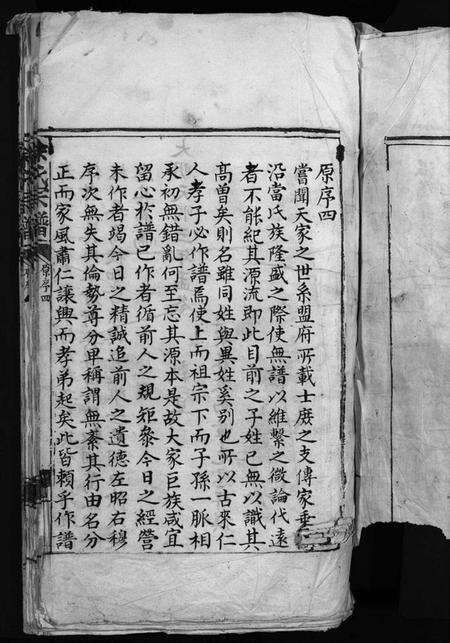 原序四
嘗聞天家之世系盟府所載士庶之支傳家乗
沿當氏族隆盛之際使無譜以維繫之微論代遠
者不能紀其源流即此目前之子姓已無以識其
高曾矣則名雖同姓與異姓奚别也所以古來仁
人孝子必作譜焉使上而祖宗下而子孫一脈相
承初無錯亂何至忘其源本是故大家巨族咸宜
留心於譜已作者循前人之規矩叅今日之經營
未作者竭今日之精誠追前人之遺德左昭右穆
序次無失其倫勢尊分卑稱謂無紊其行由名分
正而家風肅仁讓興而孝弟起矣此皆賴乎作譜
氏宗譜
原序四